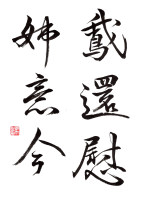 鵞還慰
姊意今